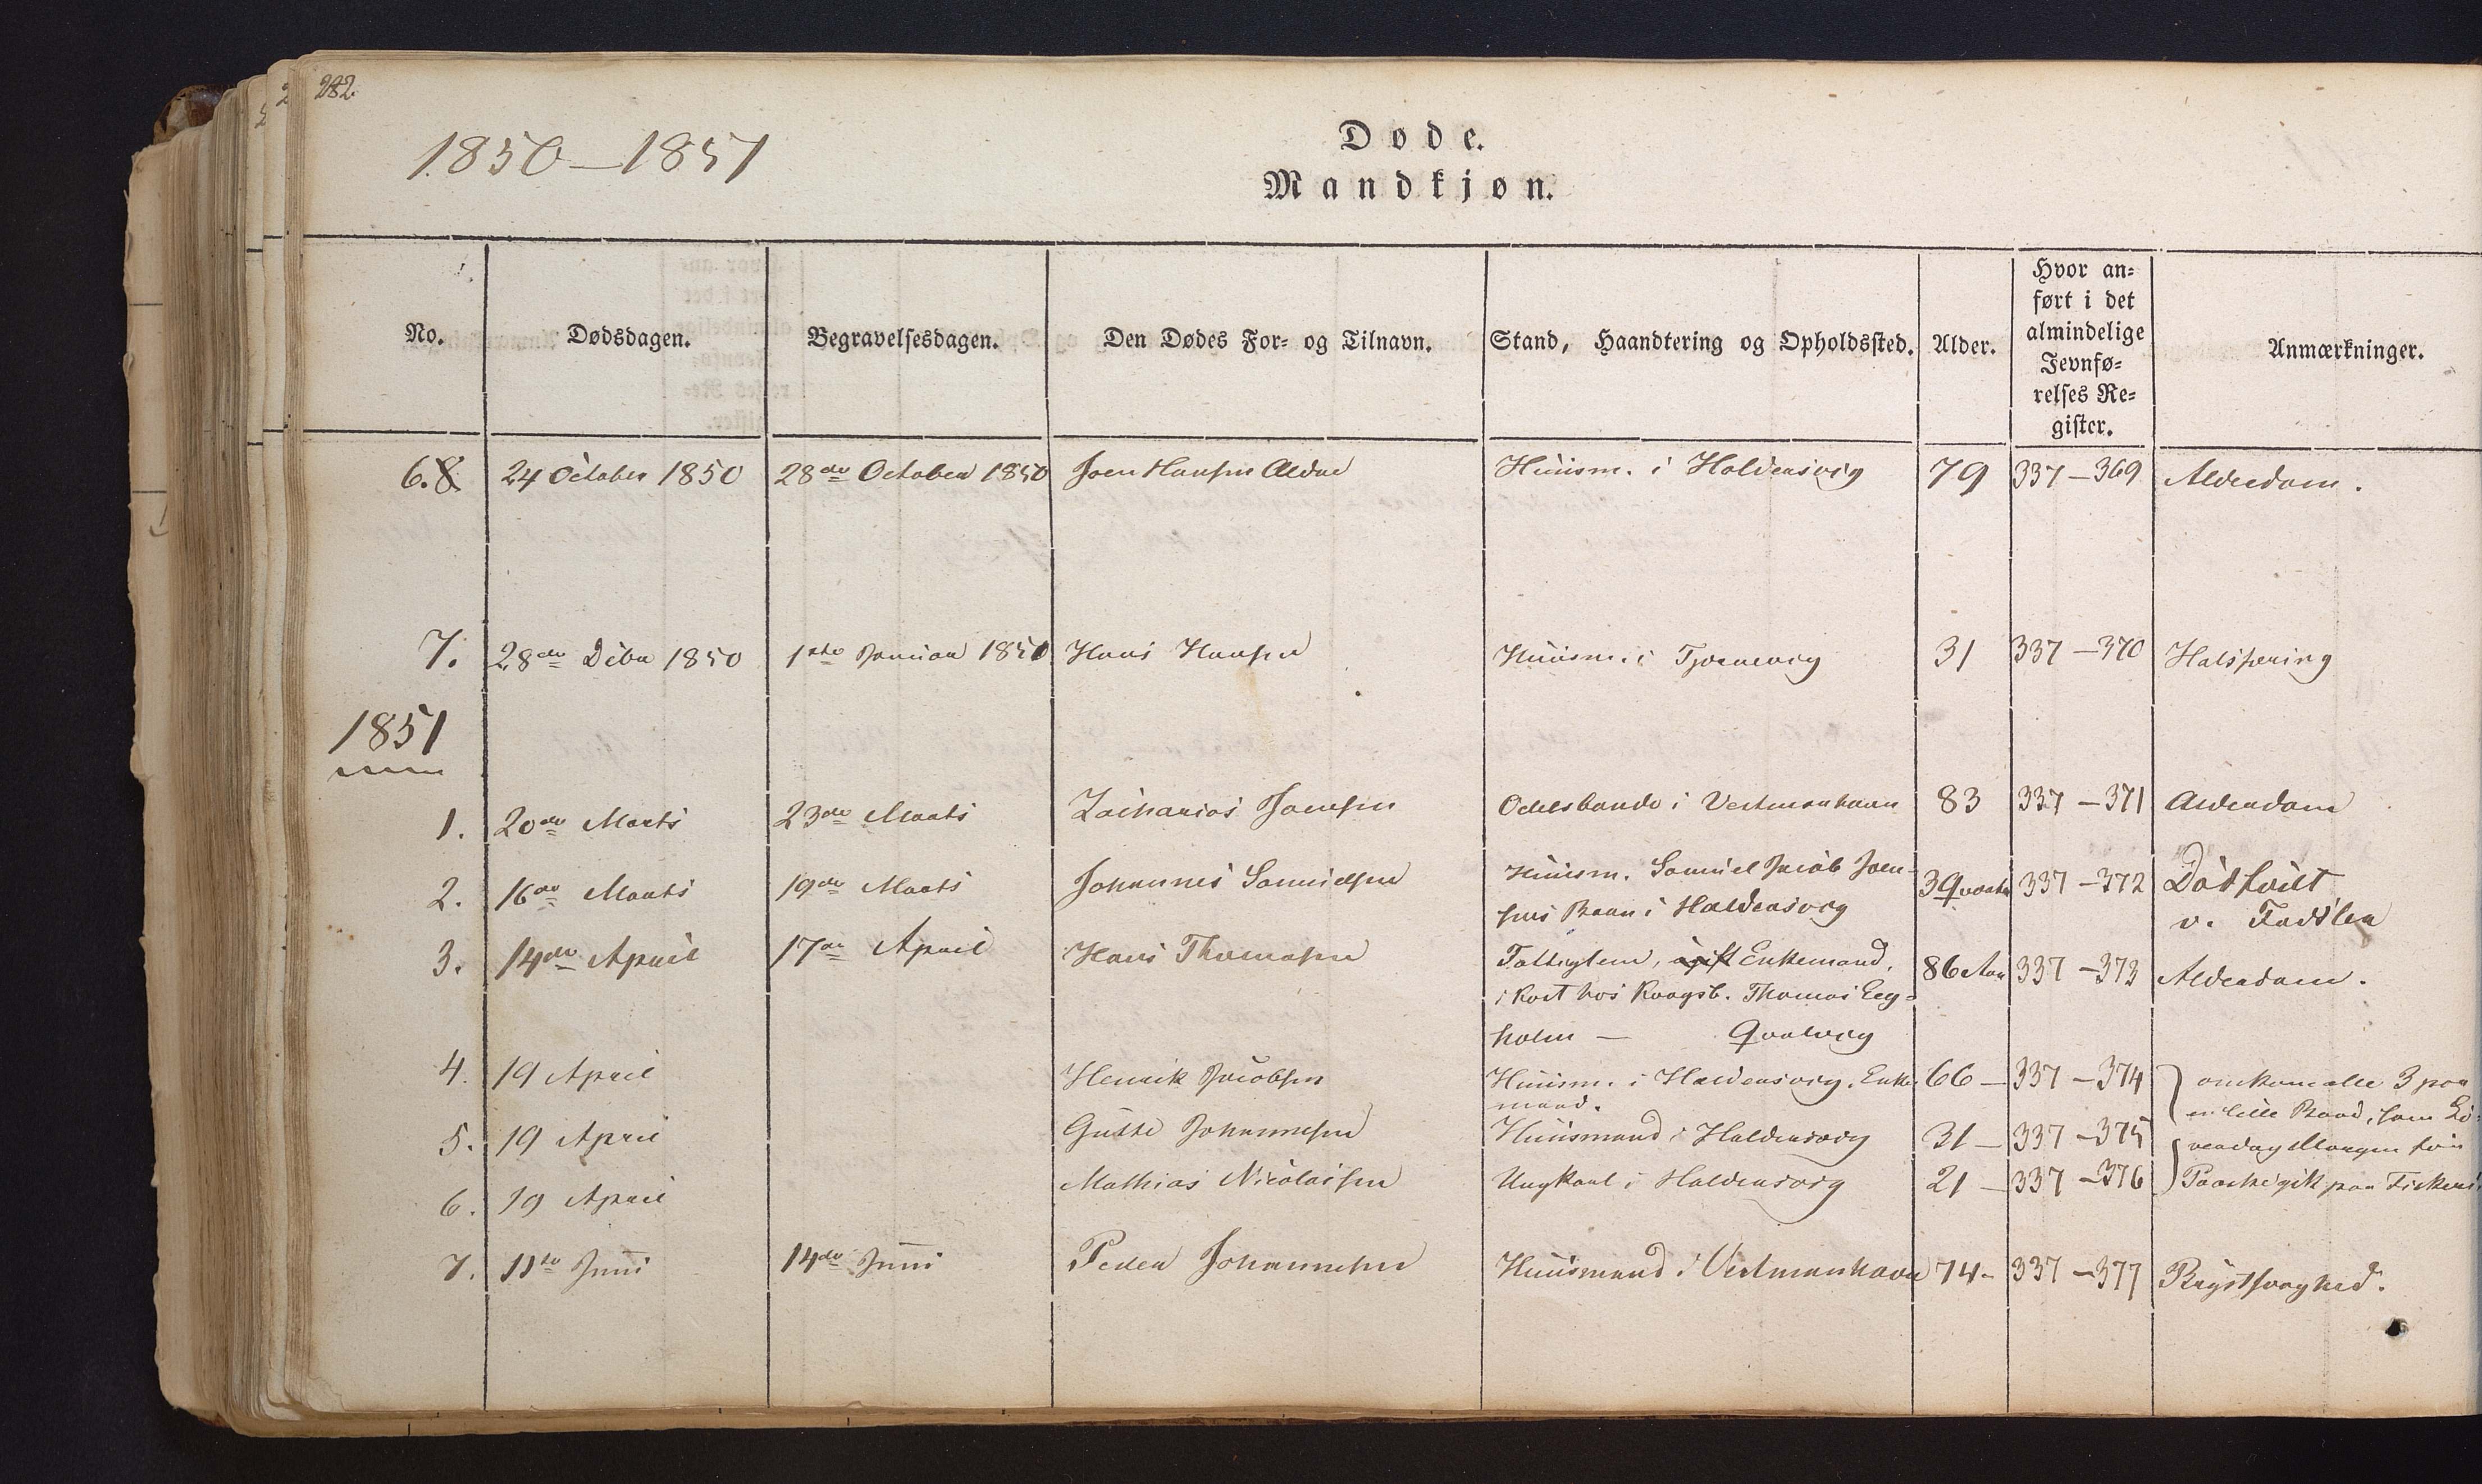 282.
1850–1851
Døde.
Mandkjøn.
No. Dødsdagen. Begravelsesdagen. Den Dødes For- og Tilnavn. Stand, Haandtering og Opholdssted. Alder. Hvor an-
ført i det
almindelige
Jevnfø-
relses Re-
gister. Anmærkninger.
6. 8. 24 October 1850 28de October 1850 Joen Hansen Huusm. i Haldensvig 79 337–369 Alderdom.
7. 28de Debr 1850 1ste Januar 1851 Hans Hansen Huusm. i Tjørnevig 31 337–370 Halsbetæn
1851
1. 20de Marts 23de Marts Zacharias Joensen Odelsbonde i Vestmanhavn 83 337–371 Alderdom
2. 16de Marts 19de Marts Johannes Samuelsen Huusm. Samuel Jacob Joen-
sens Barn i Haldensvig 337–372 Dødfødt
v. Fødslen
3. 14de April 17de April Hans Thomasen ugift Enkemand,
i Kost hos Kongsb. Thomas Eeg-
holm — Qvalvig 86 Aar 337–373 Alderdom.
4. 19 April Henrik Jacobsen Huusm. i Haldensvig, Enke-
mand. 66 – 337–374 omkom alle 3 paa
en lille Baad, som Lø-
5. 19 April Guthe Johannesen Huusmand i Haldensvig 31 – 337–375 verdag Morgen før
6. 19 April Mathias Nicolaisen Ungkarl i Haldensvig 21 – 337–376 Paaske gik paa Fiskeri.
7. 11te Juni 14de Juni Peder Johannesen Huusmand i Vestmanhavn 74 – 337–377 Brystsvaghed.